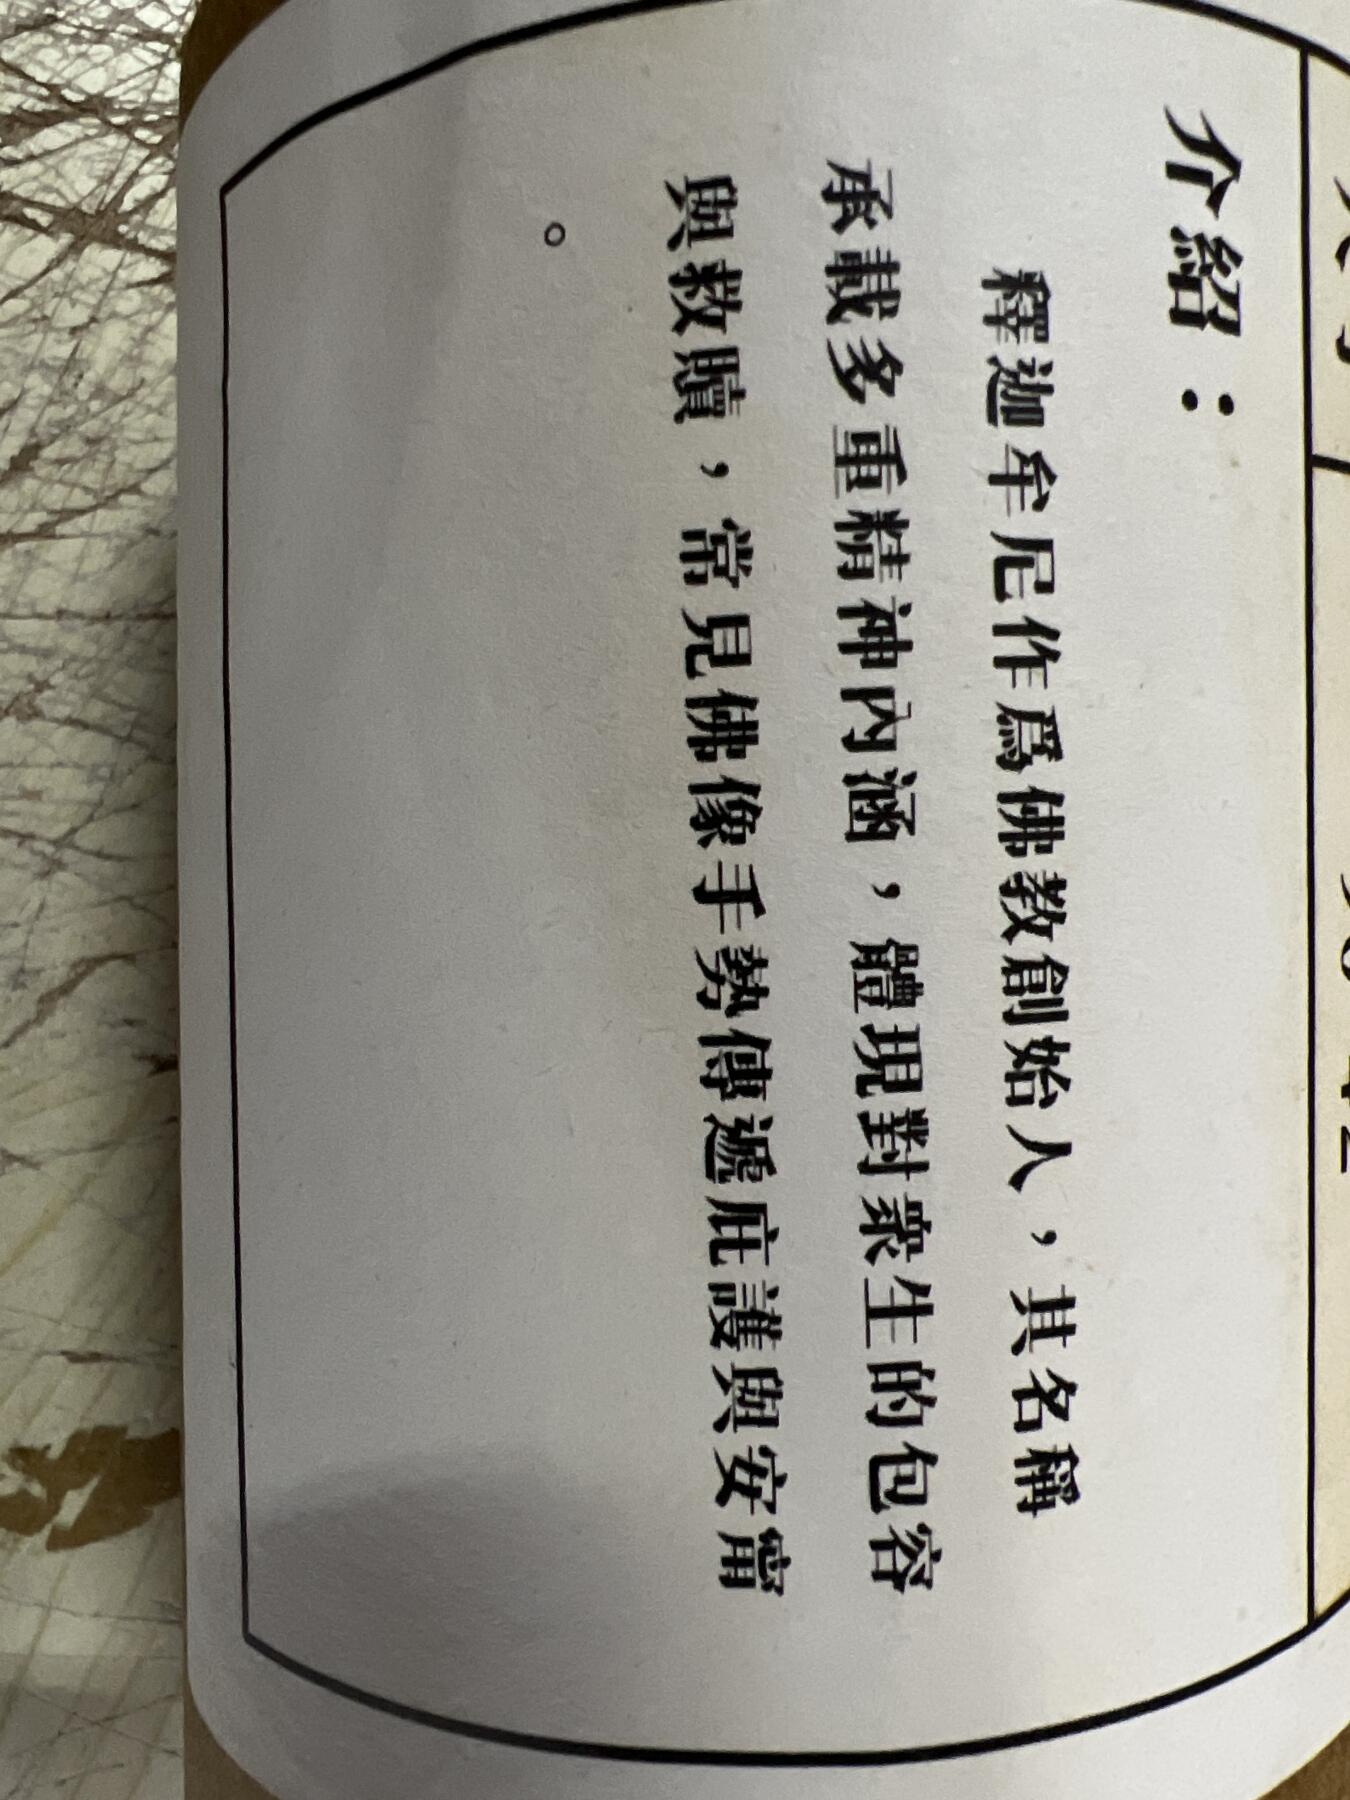 介紹：
釋迦牟尼作爲佛教創始人，其名稱
承載多重精神內涵，體現對衆生的包容
與救贖，常見佛像手勢傳遞庇護與安甯
。